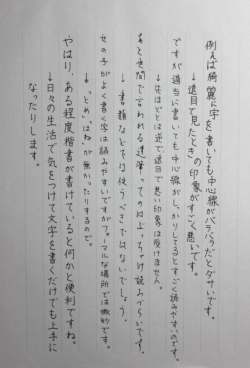 例えば綺麗に字を書いても中心線がバラバラだとダサいです。
→遠目で見たときの印象がすごく悪いです。
ですが適当に書いても中心線がしっかりしてるとすごく読みやすいのです。
→先ほどとは逆で、遠目で悪い印象は受けません。
あと世間で言われる達筆ってのはぶっちゃけ読みづらいです。
→書類などでは使うべきではないでしょう。
女の子がよく書く字は読みやすいですがフォーマルな場所では微妙です。
→「とめ」「はね」が無かったりするので。
やはり、ある程度楷書が書けていると何かと便利ですね。
→日々の生活で気をつけて文字を書くだけでも上手に
なったりします。